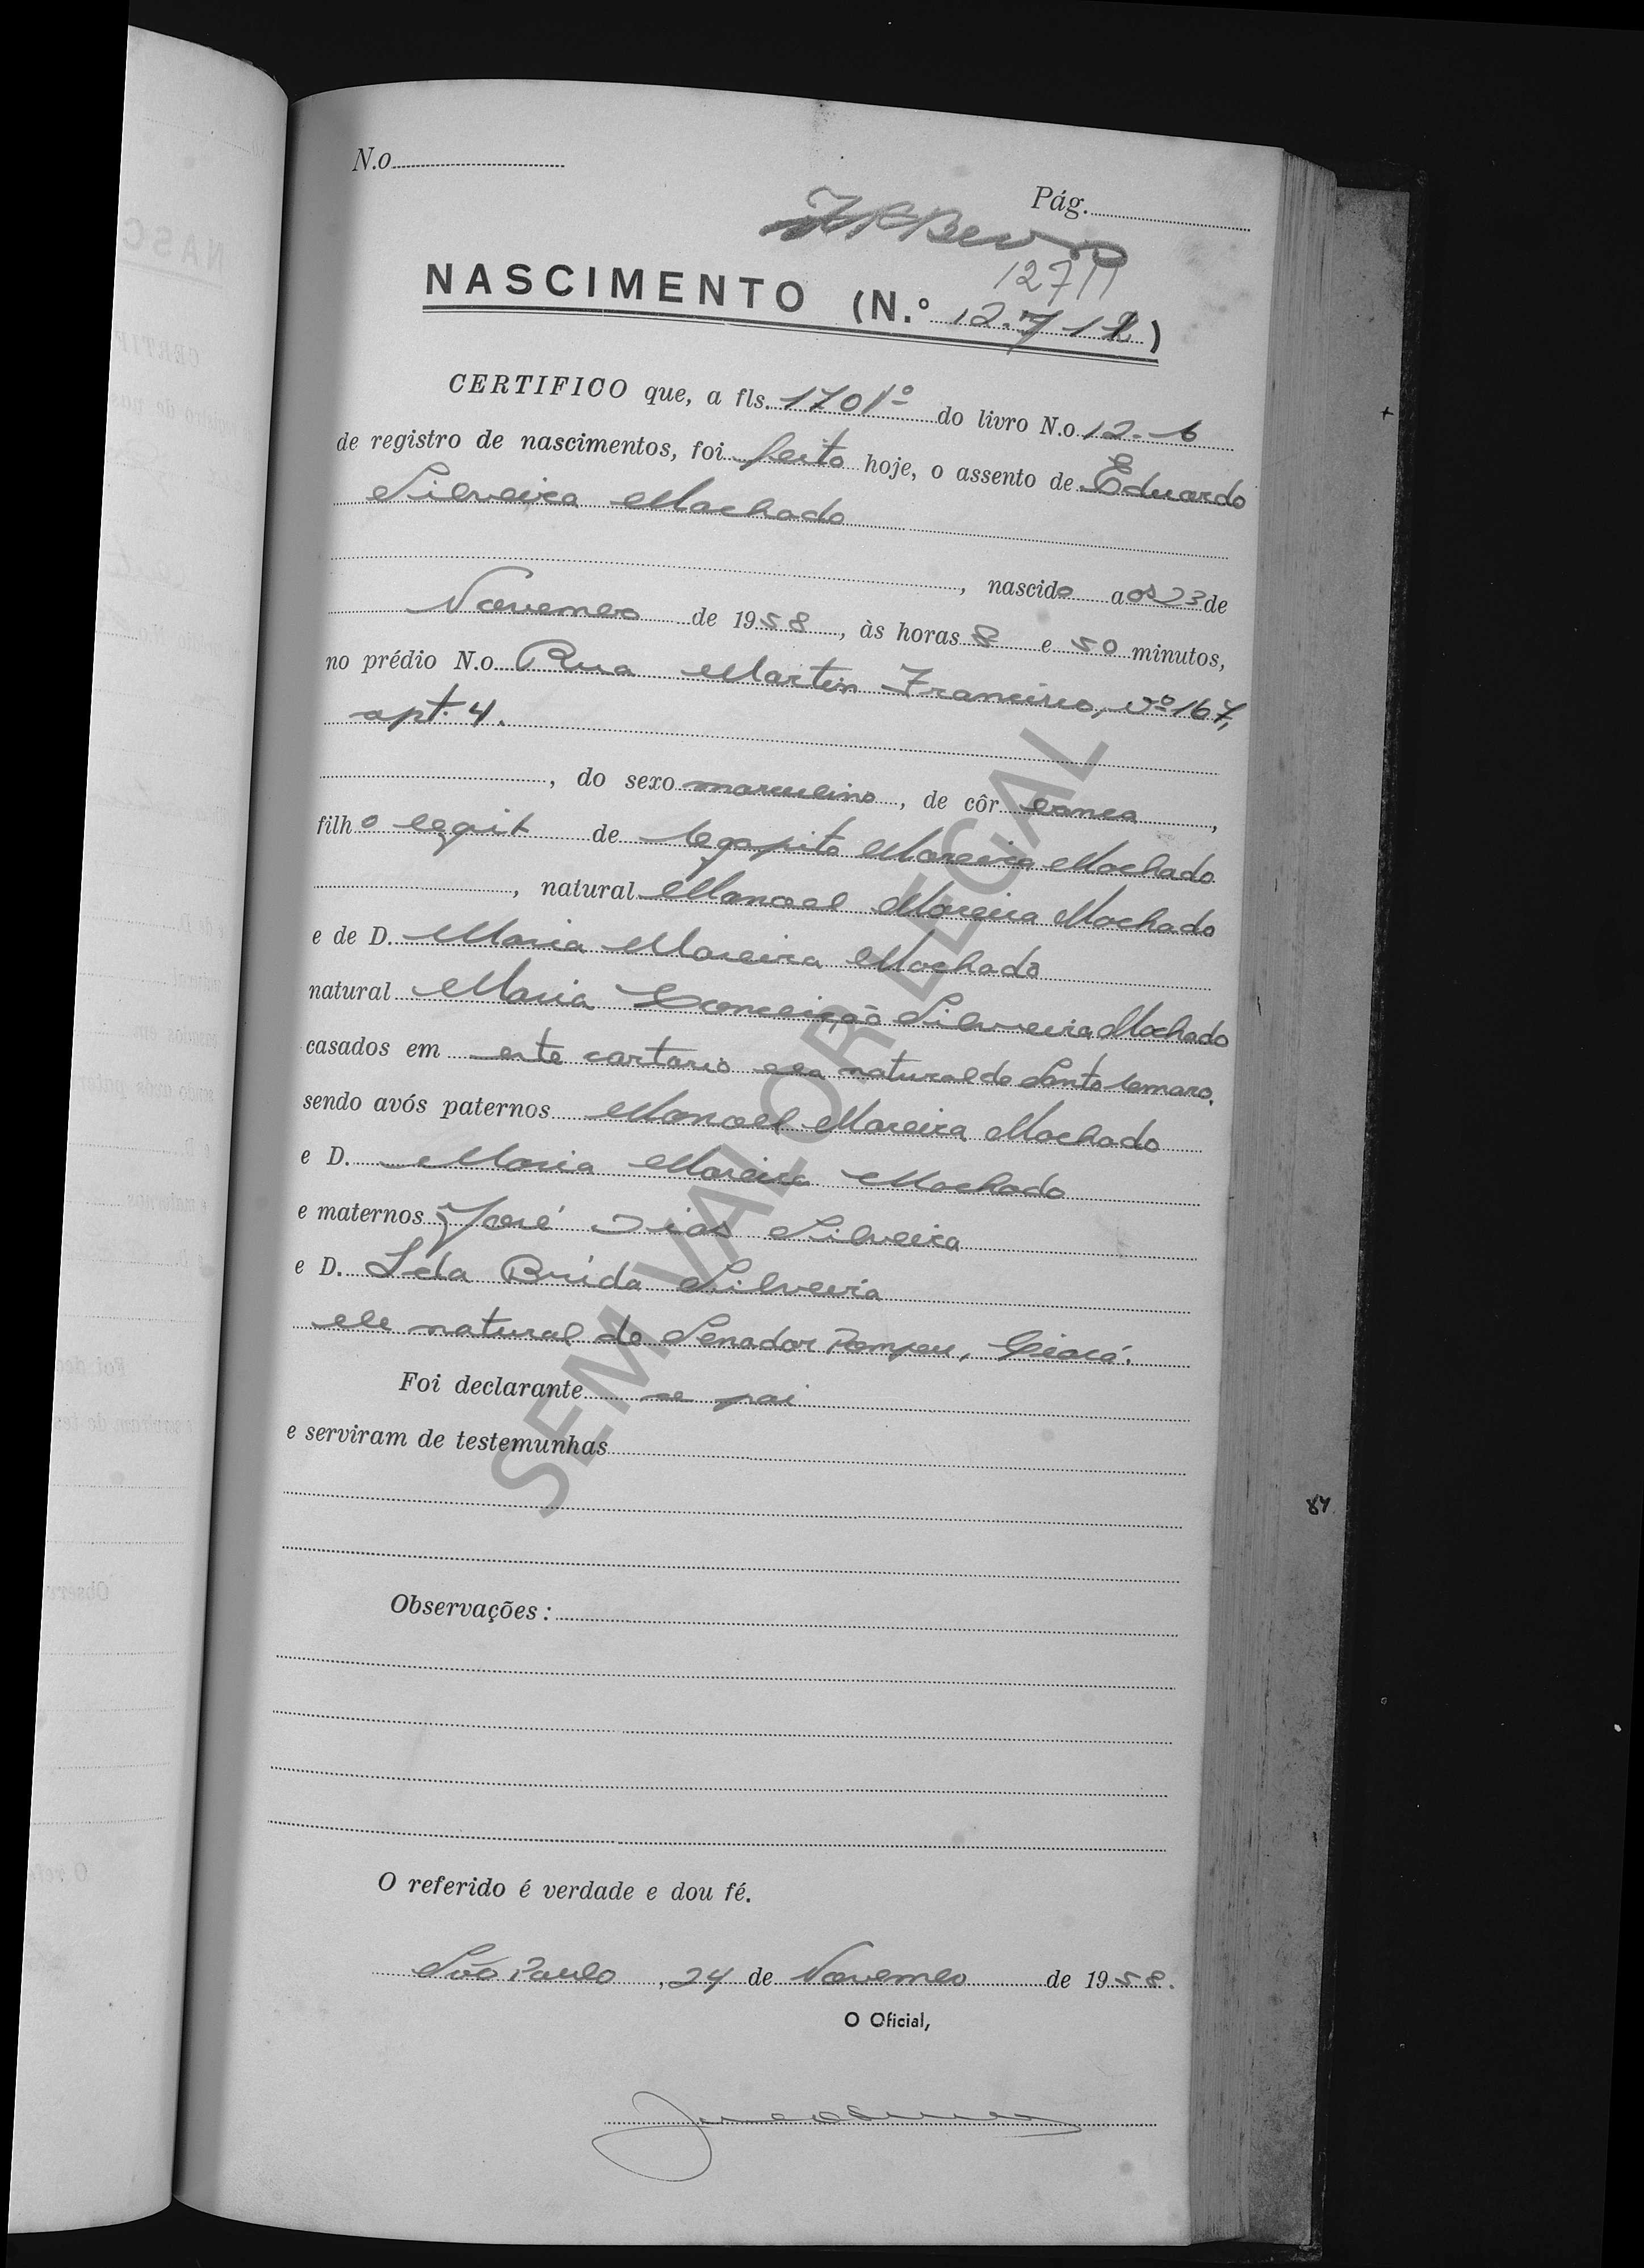 N.o
Pág.
12711
NASCIMENTO (N.º 12.712)
CERTIFICO que, a fls. 170 vº do livro N.o 12-A
de registro de nascimentos, foi feito hoje, o assento de Eduardo
Silveira Machado
, nascido aos 23 de
Novembro de 1958, às horas 8 e 50 minutos,
no prédio N.o Rua Martin Francisco, nº 167,
apt. 4.
, do sexo masculino, de côr branca,
filho legit de Agapito Moreira Machado
, natural Manoel Moreira Machado
e de D. Maria Moreira Machado
natural Maria Conceição Silveira Machado
casados em este cartorio ela natural de Santo Amaro.
sendo avós paternos Manoel Moreira Machado
e D. Maria Moreira Machado
e maternos José Dias Silveira
e D. Leda Brida Silveira
ele natural de Senador Pompeu, Ceará.
Foi declarante o pai
e serviram de testemunhas
Observações:
O referido é verdade e dou fé.
São Paulo, 24 de Novembro de 1958.
O Oficial,
SEM VALOR LEGAL
84